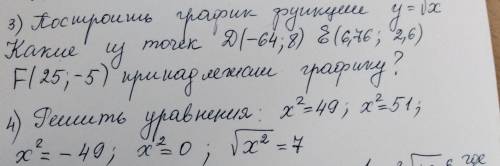 3) Построить график функции y=√x
Какие из точек D(-64;8) E(6,76; 2,6)
F(25;-5) принадлежат графику?
4) Решить уравнения: x²=49; x²=51;
x²=-49; x²=0; √x²=7
где